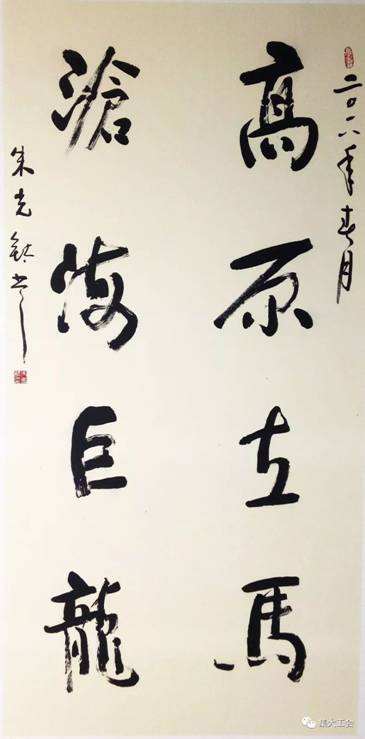 二〇一八年春月
高原立馬
滄海巨龍
朱光 书
集大工会